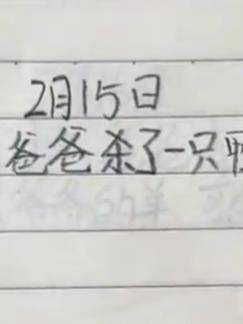 2月15日
爸爸杀了一只